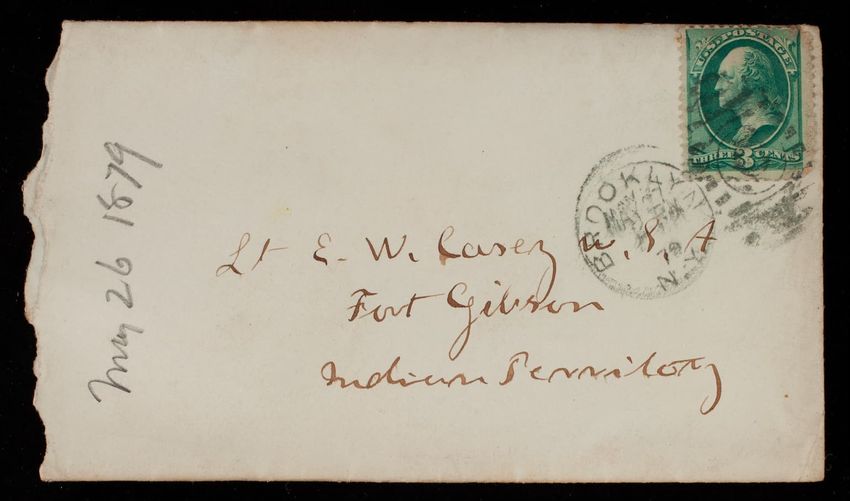 May 26 1879
U.S. POSTAGE
THREE 3 CENTS
BROOKLYN
MAY
79
N.Y.
Lt E. W. Casey U. S. A
Fort Gibson
Indian Territory